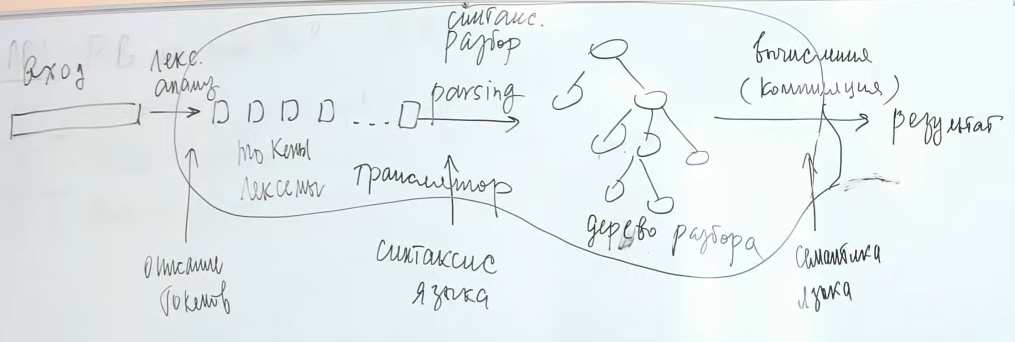 вход
лекс.
анализ
токены
лексемы
...
синтакс.
разбор
parsing
транслятор
дерево разбора
вычисления
(компиляция)
результат
описание
токенов
синтаксис
языка
семантика
языка